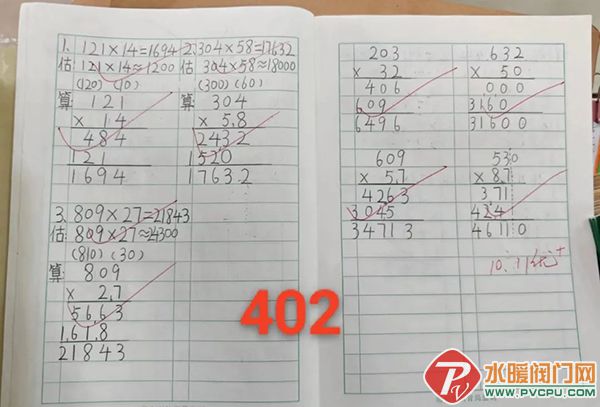 1、121×14=1694
估:121×14≈1200
(120) (10)
算: 121
× 14
484
121
1694
2.304×58=17632
估 304×58≈18000
(300)(60)
算: 304
× 58
2432
1520
17632
3.809×27=21843
估:809×27≈24300
(810)(30)
算: 809
× 27
5663
1618
21843
203
× 32
406
609
6496
632
× 50
000
3160
31600
609
× 57
4263
3045
34713
530
× 87
371
424
46110
10.11优+
402
水暖阀门网
WWW.PVCPU.COM